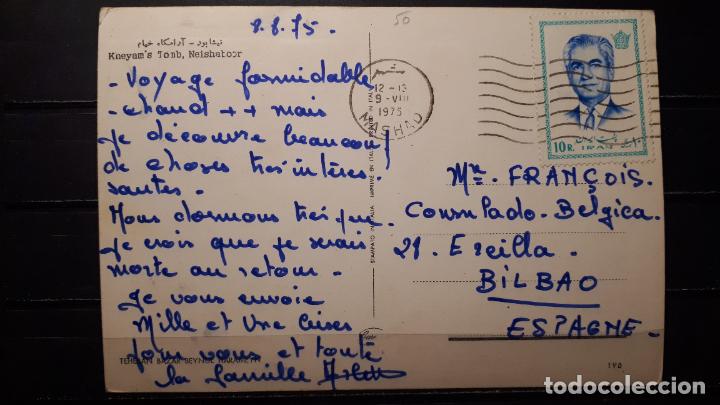 8.8.75.
50
نیشابور - آرامگاه خیام
Kneyam's Tomb, Neishaboor
- Voyage formidable
- chaud ++ mais
je découvre beaucoup
de choses très intéres-
santes -
Nous dormons très peu
je crois que je serais
morte au retour -
Je vous envoie
Mille et Une bises
pour vous et toute
la famille
TEHERAN BAZAR
STAMPATO IN ITALIA IMPRIMÉ EN ITALIE PRINTED IN ITALY
12-13
9-VIII
1975
MASHAD
10 R. IRAN
Mr. FRANÇOIS.
Consulado-Belgica.
21. Ercilla.
BILBAO
ESPAGNE.
۱۷۵
todocoleccion